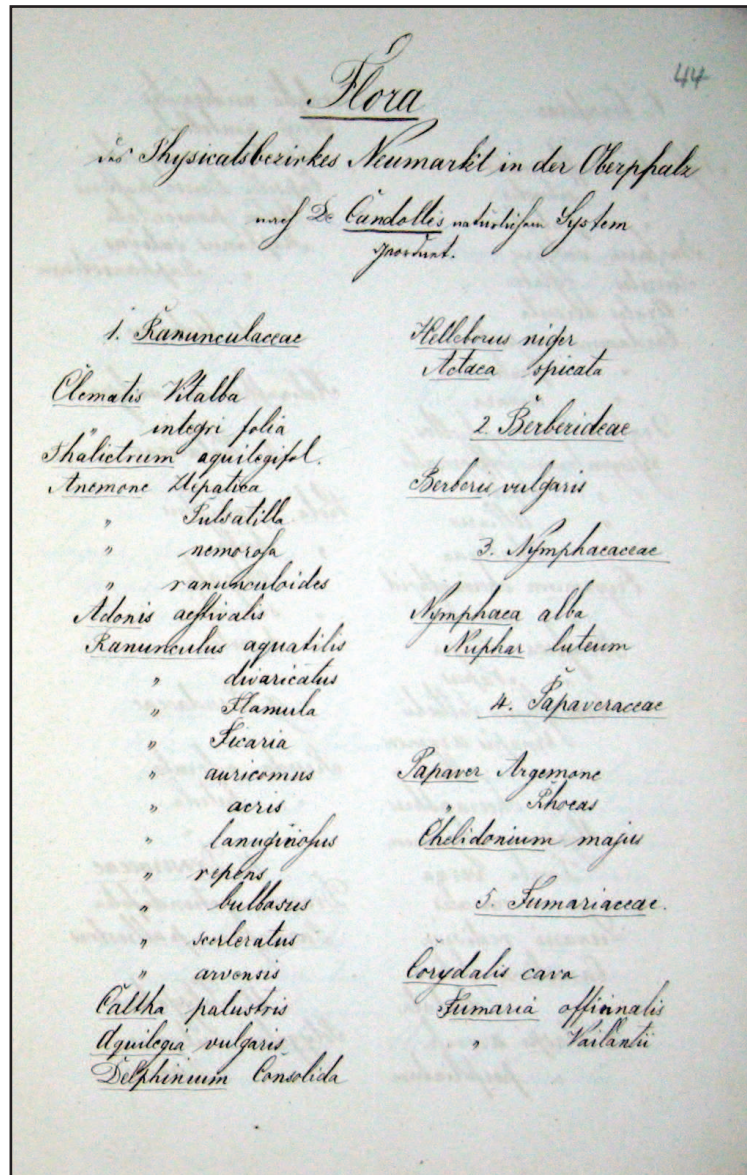 44
Flora
des Physicatsbezirkes Neumarkt in der Oberpfalz
nach De Candolles natürlichem System
geordnet.
1. Ranunculaceae
Clematis Vitalba
" integri folia
Thalictrum aquilegifol.
Anemone Hepatica
" Pulsatilla
" nemorosa
" ranunculoides
Adonis aestivalis
Ranunculus aquatilis
" divaricatus
" Flamula
" Ficaria
" auricomus
" acris
" lanuginosus
" repens
" bulbosus
" scerleratus
" arvensis
Caltha palustris
Aquilegia vulgaris
Delphinium Consolida
Helleborus niger
Actaea spicata
2. Berberideae
Berberis vulgaris
3. Nymphaeaceae
Nymphaea alba
Nuphar luteum
4. Papaveraceae
Papaver Argemone
" Rhoeas
Chelidonium majus
5. Fumariaceae.
Corydalis cava
Fumaria officinalis
" Vailantii